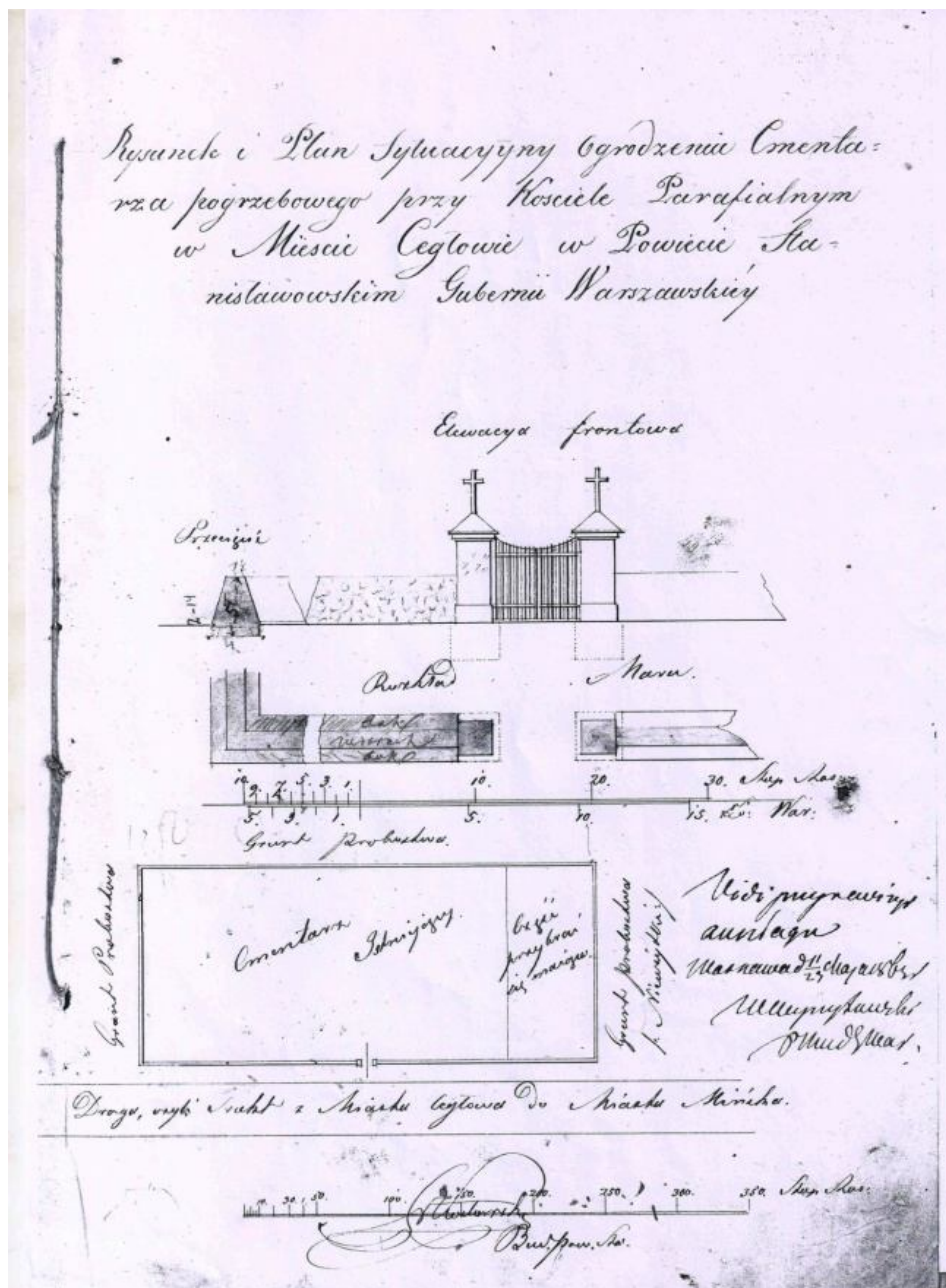 Rysunek i Plan Sytuacyyny Ogrodzenia Cmenta=
rza pogrzebowego przy Kosciele Parafialnym
w Miescie Cegłowie w Powiecie Sta=
nisławowskim Gubernii Warszawskiéy
Elewacya frontowa
Przecięcie
2-14
Rozkład Muru.
10. 9. 7. 5. 3. 1. 10. 20. 30. Stop
5. 3. 1. 5. 10. 15. War:
Grunt Probostwa.
Grunt Probostwa
Cmentarz Istniejący.
część
przybrać
się mająca.
Grunt probostwa
Vidi przy rewizyi
anszlagu
Droga, czyli Trakt z Miasta Cegłowa do Miasta Mińska.
10. 30. 50. 100. 150. 200. 250. 300. 350. Stop
Bud. Pow. Sta.